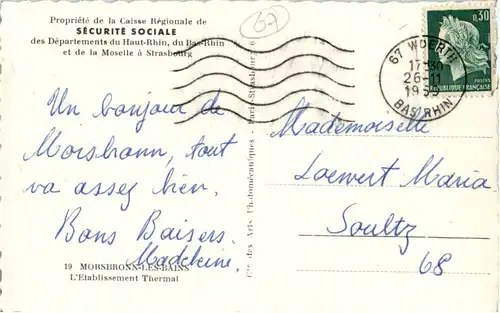 Propriété de la Caisse Régionale de
SÉCURITÉ SOCIALE
des Départements du Haut-Rhin, du Bas-Rhin
et de la Moselle à Strasbourg
67
Un bonjour de
Morsbronn, tout
va assez bien.
Bons Baisers.
Madeleine.
19 MORSBRONN-LES-BAINS
L'Etablissement Thermal
Cie des Arts Photomécaniques - Paris-Strasbourg
67 WOERTH
17 30
26-11
BAS RHIN
0,30
POSTES
REPUBLIQUE FRANÇAISE
Mademoiselle
Loewert Maria
Soultz
68